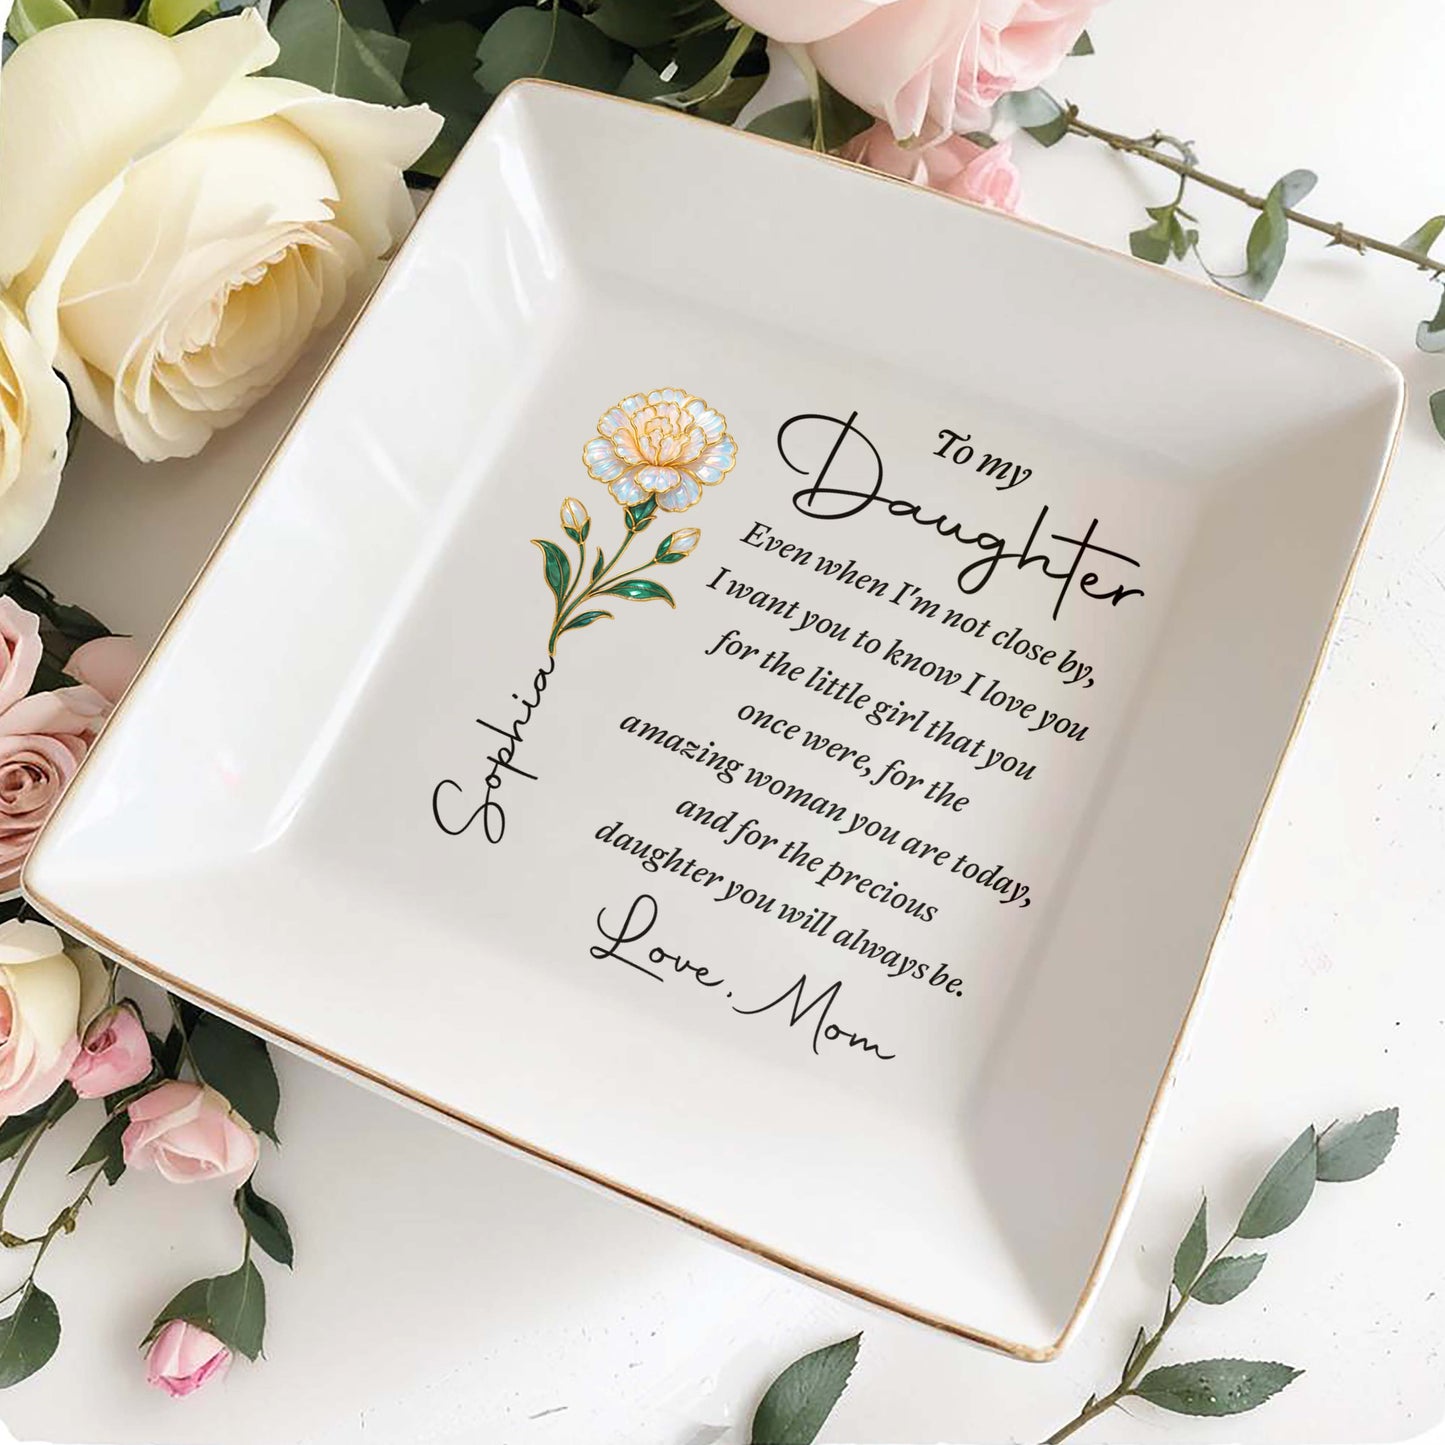 To my
Daughter
Even when I'm not close by,
I want you to know I love you
for the little girl that you
once were, for the
amazing woman you are today,
and for the precious
daughter you will always be.
Love, Mom
Sophia